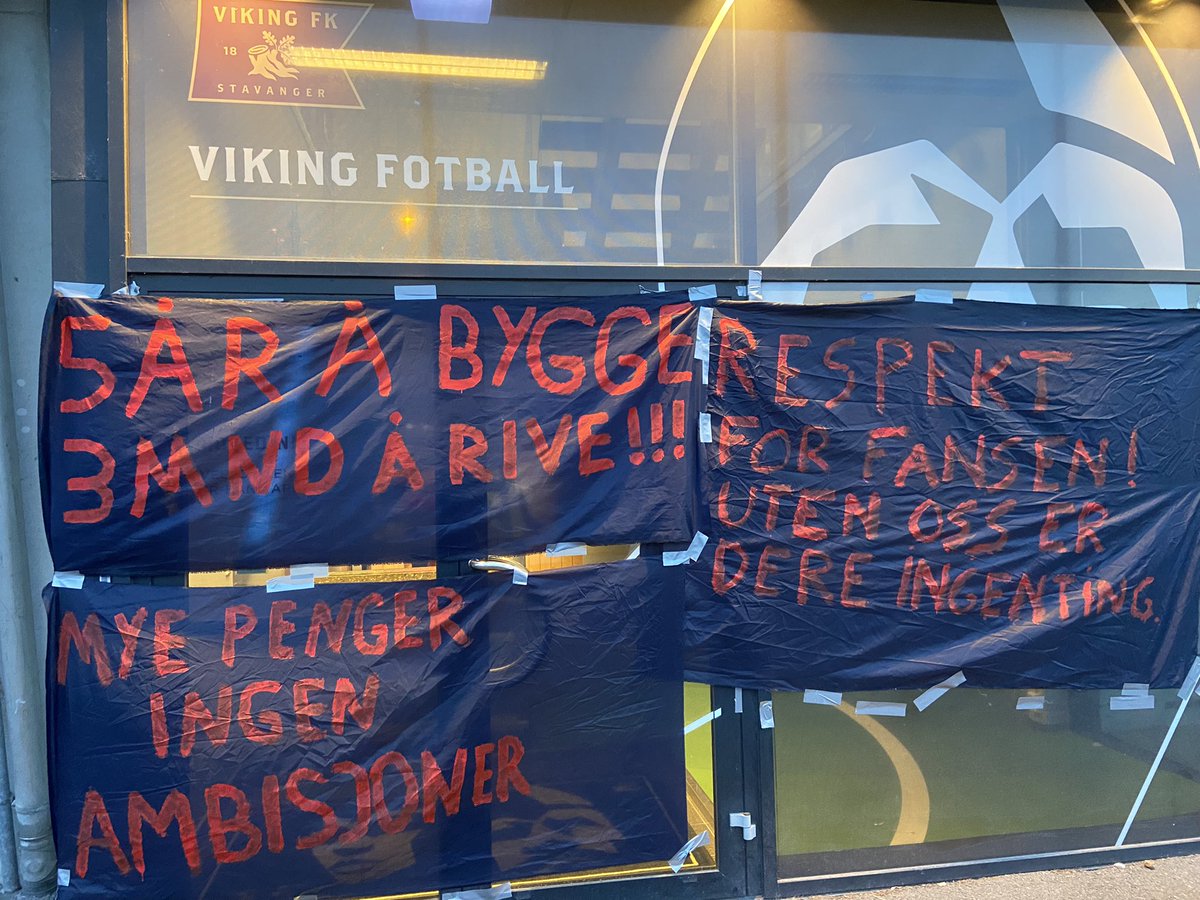 VIKING FK
18
STAVANGER
VIKING FOTBALL
5 ÅR Å BYGGE
3 MND Å RIVE!!!
RESPEKT
FOR FANSEN!
UTEN OSS ER
DERE INGENTING.
MYE PENGER
INGEN
AMBISJONER